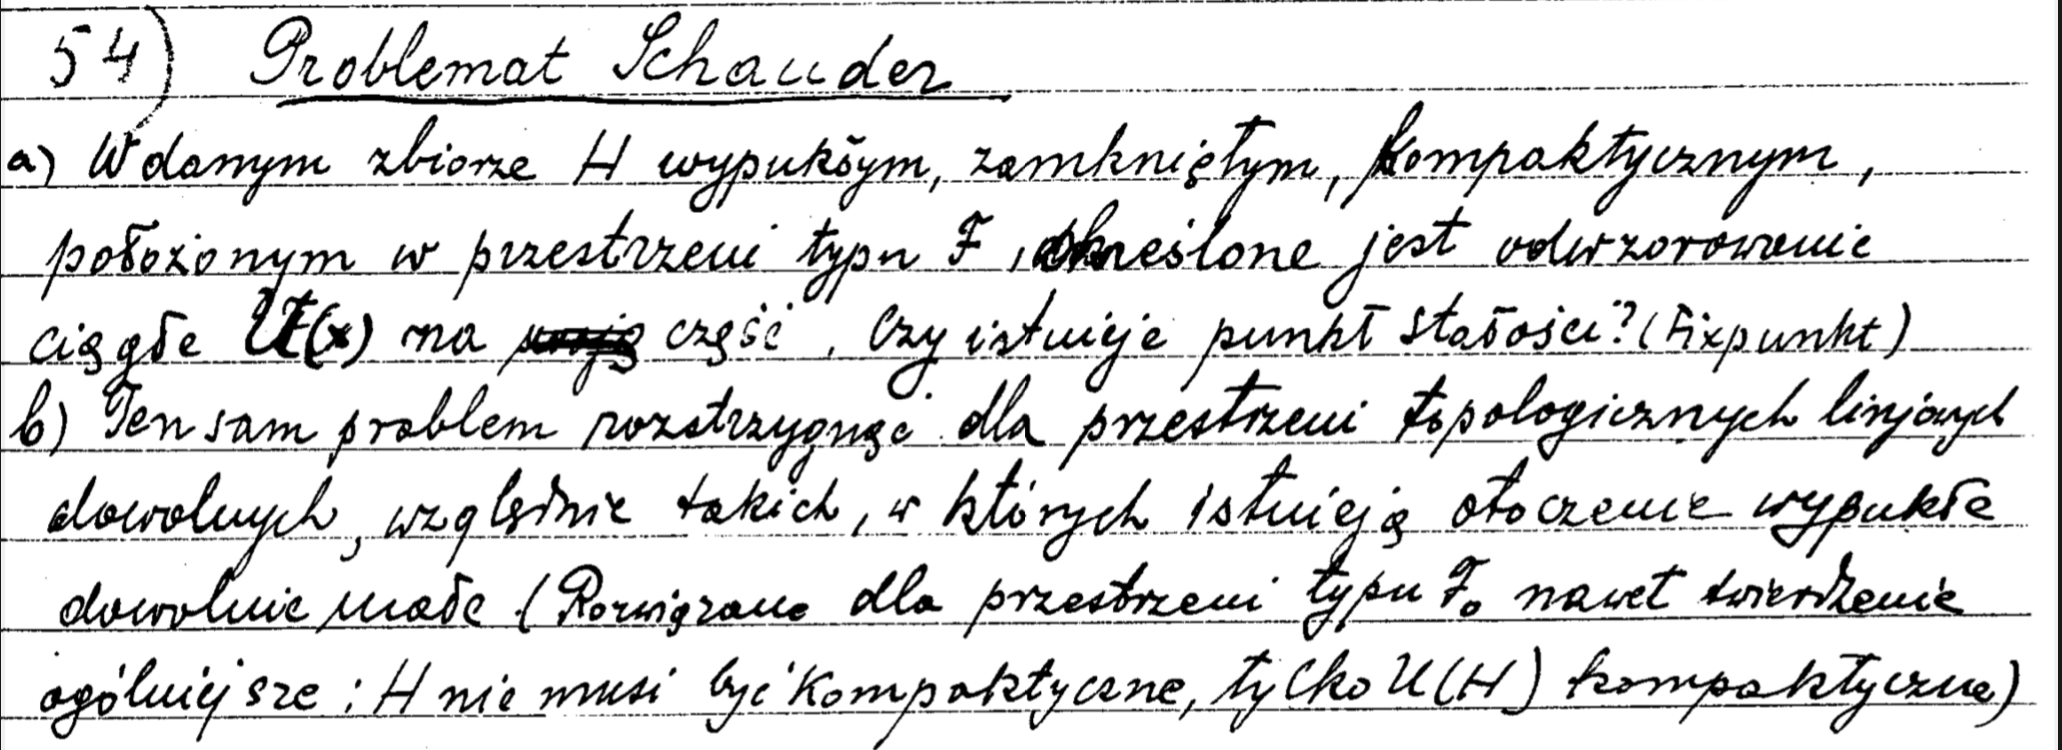 54) Problemat Schauder
a) W danym zbiorze H wypukłym, zamkniętym, kompaktycznym,
położonym w przestrzeni typu F, określone jest odwzorowanie
ciągłe U(x) na część. Czy istnieje punkt stałości? (Fixpunkt)
b) Ten sam problem rozstrzygnąć dla przestrzeni topologicznych linjowych
dowolnych, względnie takich, w których istnieją otoczenie wypukłe
dowolnie małe. (Rozwiązane dla przestrzeni typu F₀ nawet twierdzenie
ogólniejsze: H nie musi być kompaktyczne, tylko U(H) kompaktyczne)